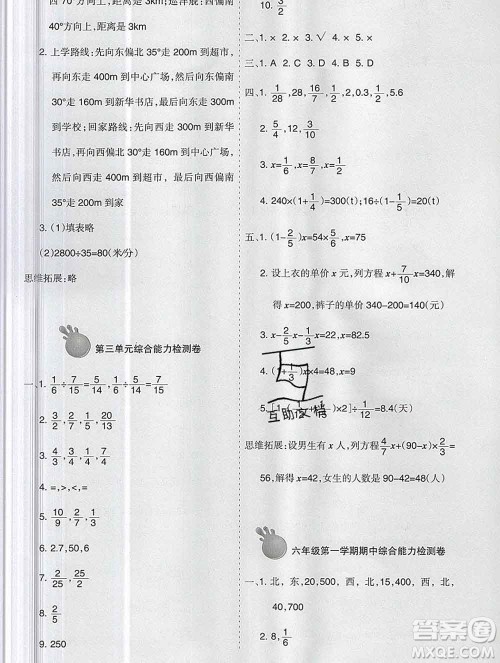 西 70°方向上,距离是 3km;巡洋舰:西偏南
40°方向上,距离是 3km
2. 上学路线:先向东偏北 35°走 200m 到中心超市,
然后向东走 400m 到中心广场,然后向西偏南
30°走 160m 到新华书店,再向东偏南 45°走 300m
到学校;回家路线:先向西偏北 45°走 300m 到新华
书店,再向东偏北 30°走 160m 到中心广场,
然后向西走 400m 到中心超市,再向西偏南
35°走 200m 到家
3. (1)填表略
(2)2800÷35=80(米/分)
思维拓展:略
第三单元综合能力检测卷
一、1. 1/6÷7/15=5/14,1/6÷5/14=7/15
2. 3/2,2/7,1/20
3. 10/9,49/24,9/20,2/25
4. =,>,<,=
5. 2.7,50,6
6. 21/50
7. 9/25
8. 2/5
9. 250
10. 3/2
二、1. × 2. × 3. √ 4. × 5. ×
三、1. A 2. C 3. D 4. A 5. A
四、1. 1/28,28,16/7,1/2,0.3,1/2,5.6
2. 5/4,12,3/10
3. x=1/6,x=8/7,x=1/3
4. 240×(1+1/4)=300(t);1-1/5)=20(t)
五、1. (1-2/5)x=54×5/6,x=75
2. 设上衣的单价 x 元,列方程 x+7/10x=340,
解得 x=200,裤子的单价 340-200=140(元)
3. x-2/5x-1/3x=22,x=
4. (1+1/3)x×4=48,x=9
互助文档
思维拓展:设男生有 x 人,列方程 4/7x+(90-x)×2/3=
56,解得 x=42,女生的人数是 90-42=48(人)
六年级第一学期期中综合能力检测卷
一、1. 北,东,20,500,西,南,20,400,西,北,
40,700
2. 8,1/6
答案圈
MXQE.COM